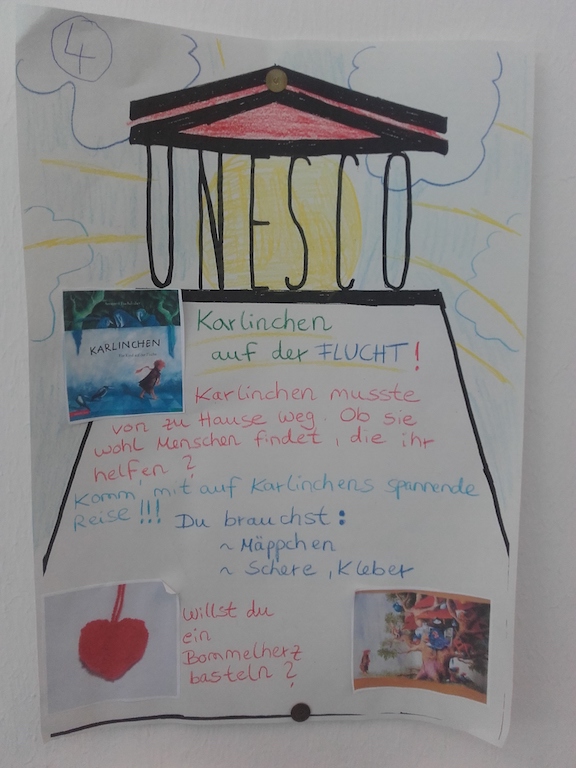 4
UNESCO
KARLINCHEN
Karlinchen
auf der FLUCHT!
Karlinchen musste
von zu Hause weg. Ob sie
wohl Menschen findet, die ihr
helfen?
Komm, mit auf Karlinchens spannende
Reise!!!
Du brauchst:
~ Mäppchen
~ Schere, Kleber
Willst du
ein
Bommelherz
basteln?